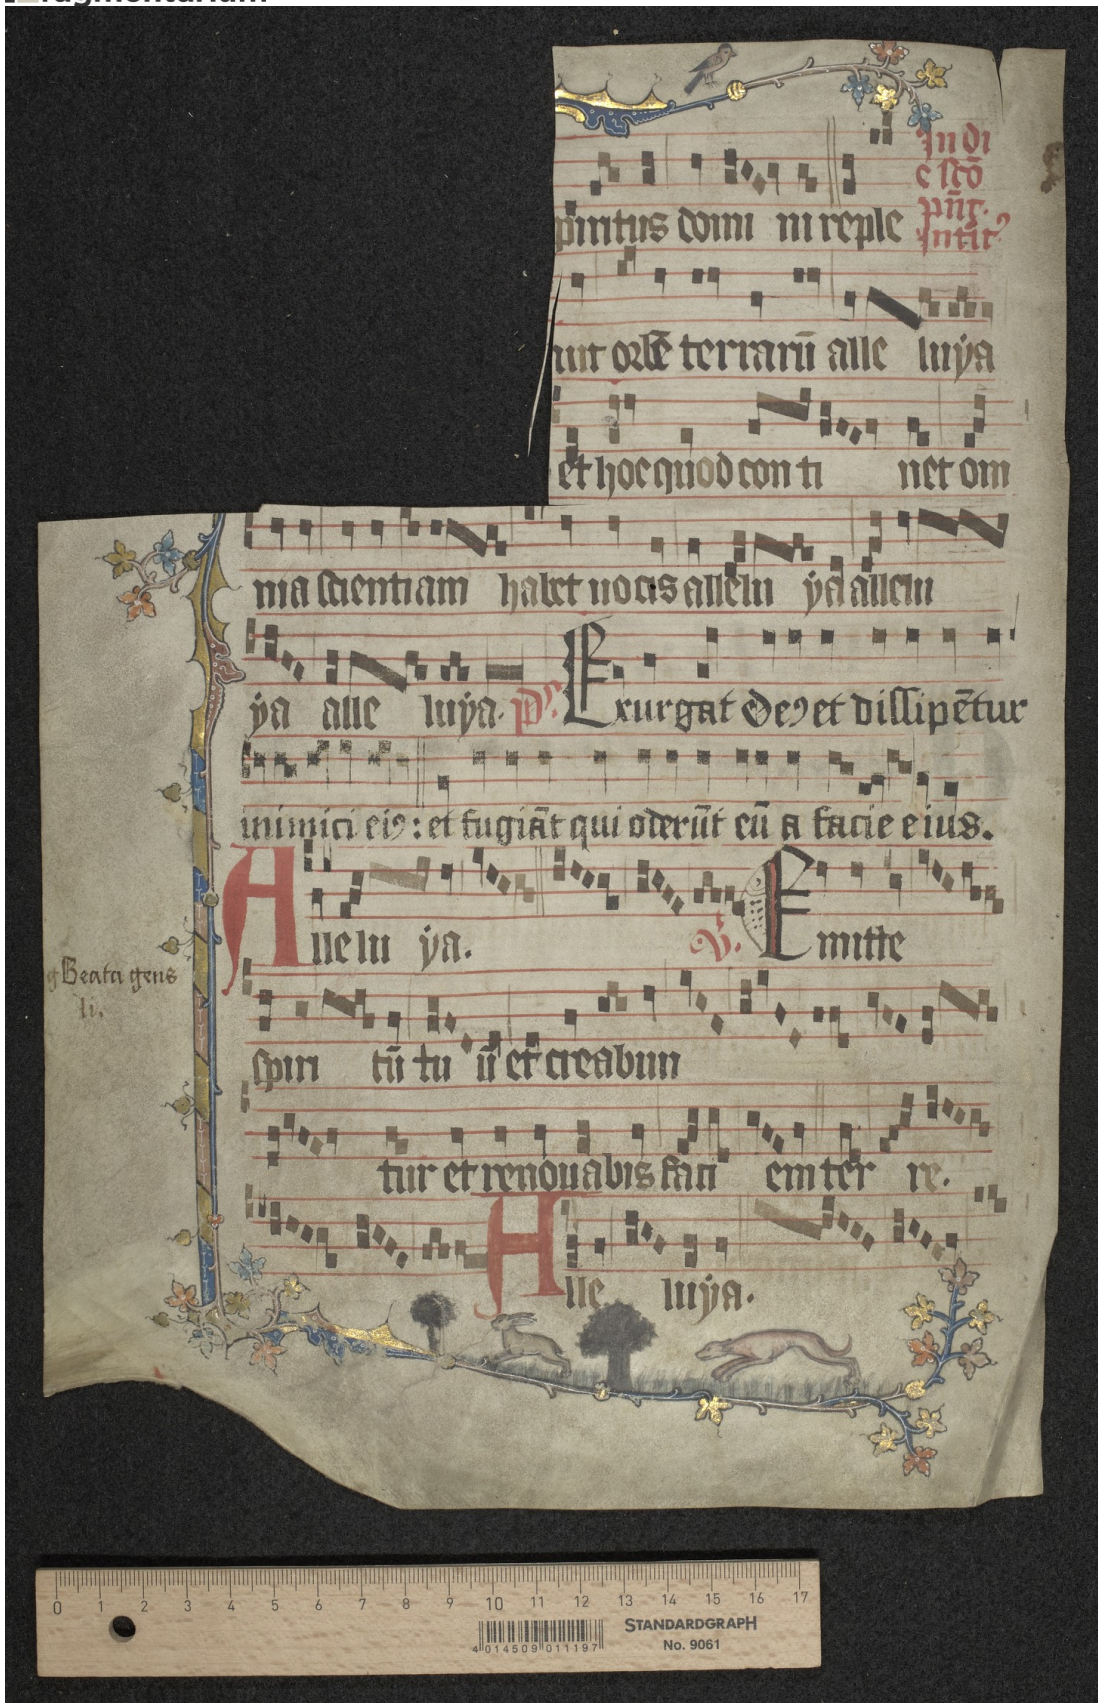 In di
e scō
pñt.
piritus domi ni reple
Intit᷒
uit orbē terrarū alle luya
et hoc quod con ti net om
nia scientiam habet uocis allelu ya allelu
ya alle luya. ps. Exurgat deꝰ et dissipētur
inimici eiꝰ: et fugiāt qui oderūt eū a facie eius.
Allelu ya. V. Emitte
g Beata gens
li.
spiri tū tu ū et creabun
tur et renouabis faci em ter re.
Alle luya.
0 1 2 3 4 5 6 7 8 9 10 11 12 13 14 15 16 17
STANDARDGRAPH
No. 9061
4 014509 011197